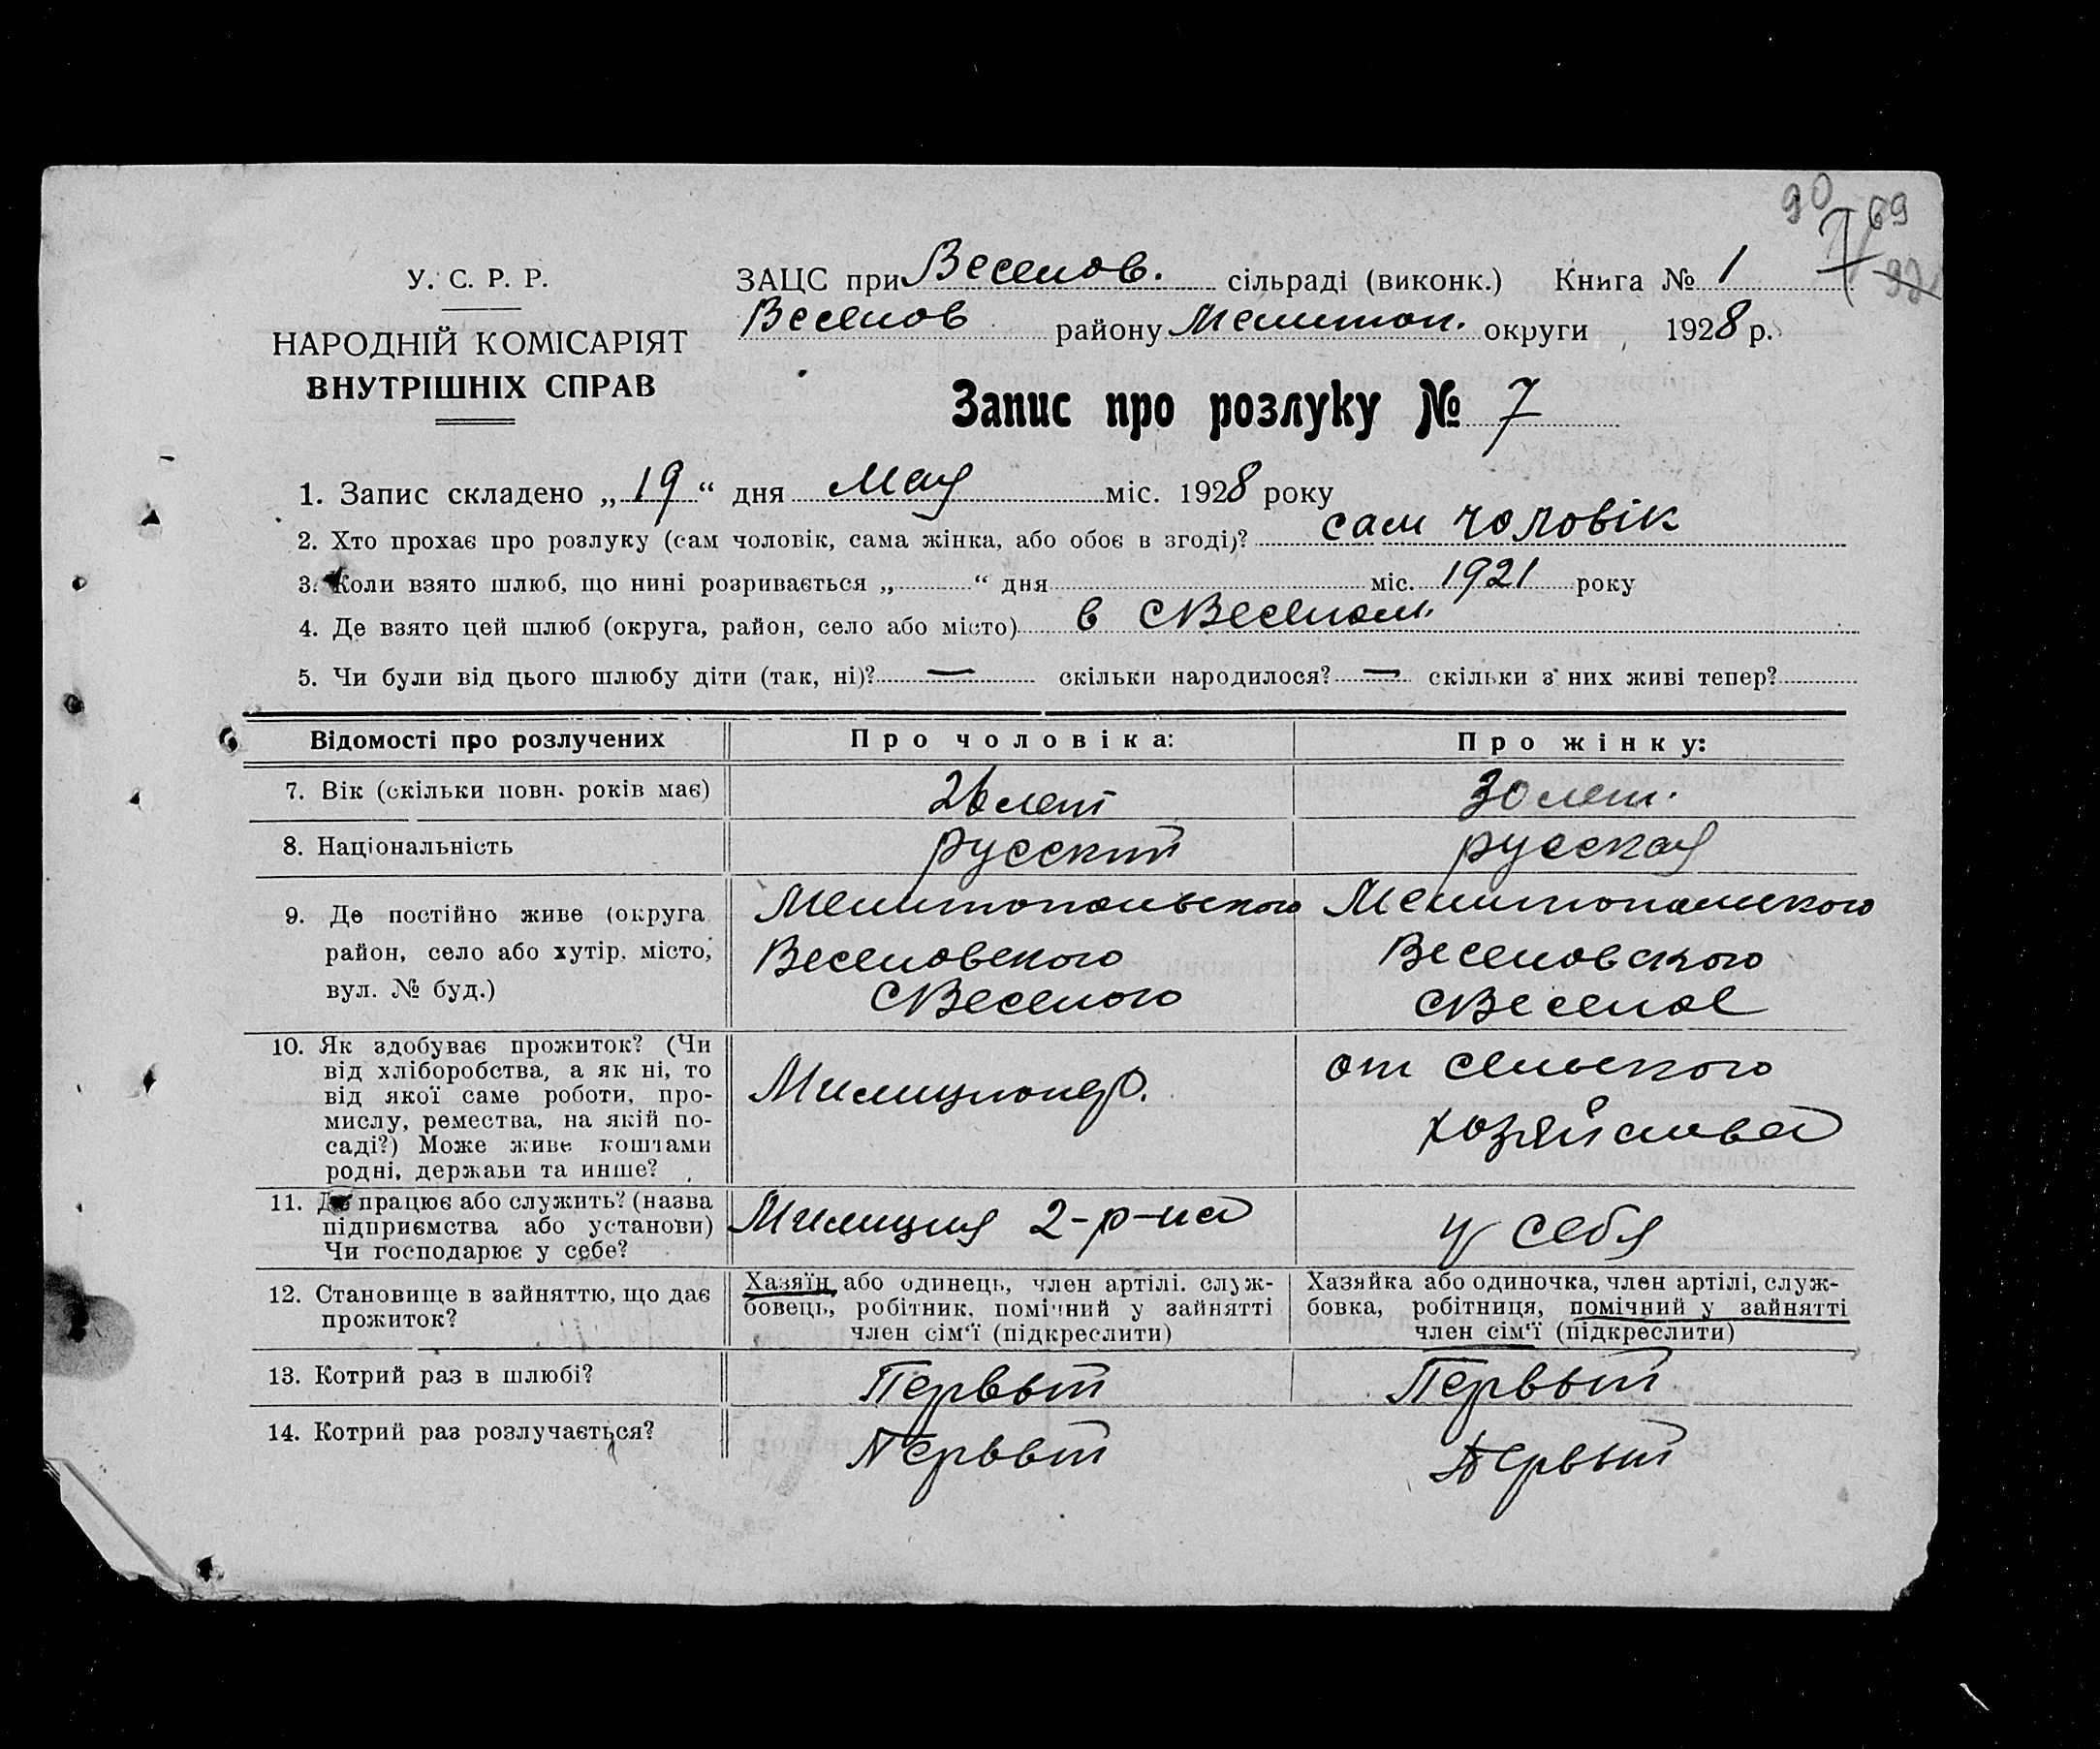 90 69
У. С. Р. Р.
НАРОДНІЙ КОМІСАРІЯТ
ВНУТРІШНІХ СПРАВ
ЗАЦС при Веселов. сільраді (виконк.) Книга № 1
Веселов району Мелитоп. округи 1928 р.
Запис про розлуку № 7
1. Запис складено „19“ дня Мая міс. 1928 року
2. Хто прохає про розлуку (сам чоловік, сама жінка, або обоє в згоді)? сам чоловік
3. Коли взято шлюб, що нині розривається „ “ дня міс. 1921 року
4. Де взято цей шлюб (округа, район, село або місто) в с Веселом
5. Чи були від цього шлюбу діти (так, ні)? — скільки народилося? — скільки з них живі тепер?
Відомості про розлучених Про чоловіка: Про жінку:
7. Вік (скільки повн. років має) 26 лет 30 лет.
8. Національність русский русская
9. Де постійно живе (округа, район, село або хутір, місто, вул. № буд.)
Мелитопольского
Веселовского
с Веселого
Мелитопольского
Веселовского
с Веселое
10. Як здобуває прожиток? (Чи
від хліборобства, а як ні, то
від якої саме роботи, про-
мислу, ремества, на якій по-
саді?) Може живе коштами
родні, держави та инше?
Милиционер.
от сельского
хозяйства
11. Де працює або служить? (назва
підприємства або установи)
Чи господарює у себе?
Милиция 2-р-на
у себя
12. Становище в зайняттю, що дає
прожиток?
Хазяїн, або одинець, член артілі, служ-
бовець, робітник, помічний у зайнятті
член сім'ї (підкреслити)
Хазяйка або одиночка, член артілі, служ-
бовка, робітниця, помічний у зайнятті
член сім'ї (підкреслити)
13. Котрий раз в шлюбі? Первый Первый
14. Котрий раз розлучається? Первый Первый